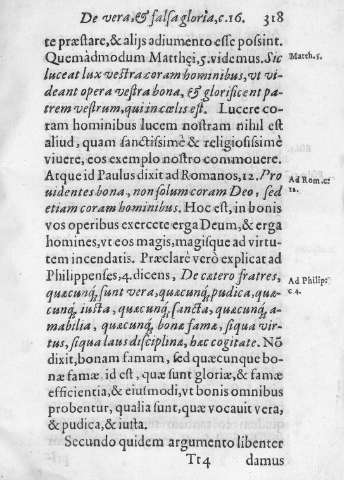 De vera, & falsa gloria, c.16. 318
te præstare, & alijs adiumento esse possint.
Quemàdmodum Matthęi, 5. videmus. Sic
Matth. 5.
luceat lux vestra coram hominibus, vt vi-
deant opera vestra bona, & glorificent pa-
trem vestrum, qui in cœlis est. Lucere co-
ram hominibus lucem nostram nihil est
aliud, quam sanctissimè & religiosissimè
viuere, eos exemplo nostro commouere.
Atque id Paulus dixit ad Romanos, 12. Pro
Ad Rom. c.
uidentes bona, non solum coram Deo, sed
12.
etiam coram hominibus. Hoc est, in bonis
vos operibus exercete erga Deum, & erga
homines, vt eos magis, magisque ad virtu-
tem incendatis. Præclarè verò explicat ad
Philippenses, 4. dicens, De cætero fratres,
Ad Philip.
quæcunq; sunt vera, quæcunq; pudica, quæ-
c 4.
cunq; iusta, quæcunq; sancta, quæcunq; a-
mabilia, quæcunq; bonæ famæ, siqua vir-
tus, siqua laus disciplinæ, hæc cogitate. Nõ
dixit, bonam famam, sed quæcunque bo-
næ famæ id est, quæ sunt gloriæ, & famæ
efficientia, & eiusmodi, vt bonis omnibus
probentur, qualia sunt, quæ vocauit vera,
& pudica, & iusta.
Secundo quidem argumento libenter
Tt 4 damus